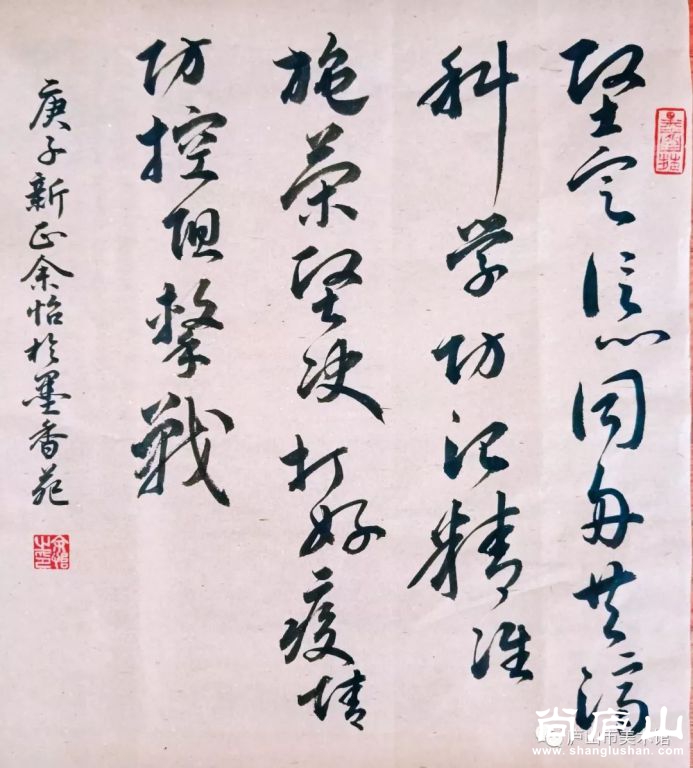 坚定信心同舟共济
科学防治精准
施策坚决打好疫情
防控阻击战
庚子新正余怡于墨香苑
尚庐山
庐山市美术馆
www.shanglushan.com